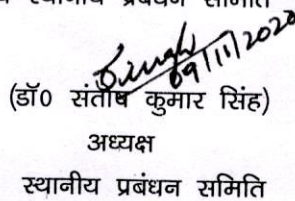 स्थानीय प्रबंधन समिति
09/11/2020
(डॉ0 संतोष कुमार सिंह)
अध्यक्ष
स्थानीय प्रबंधन समिति